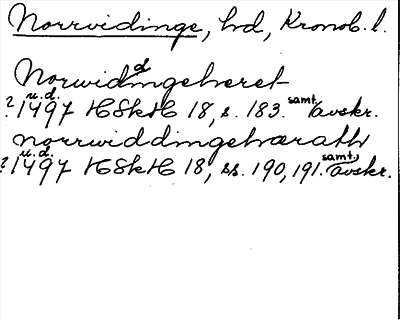 Norrvidinge, hd, Kronob. l.
Norwidindgeheret
u.d.
? 1497 HSkH 18, s. 183. samt. avskr.
norrwiddingehærath
u.d.
? 1497 HSkH 18, ss. 190, 191. samt. avskr.